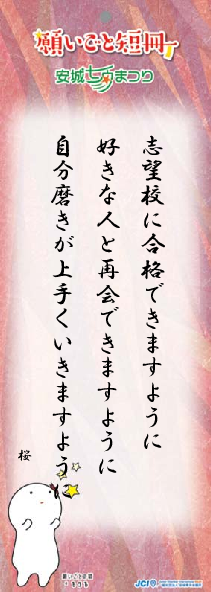 願いごと短冊
安城七夕まつり
志望校に合格できますように
好きな人と再会できますように
自分磨きが上手くいきますように
桜
願いごと短冊
JCI